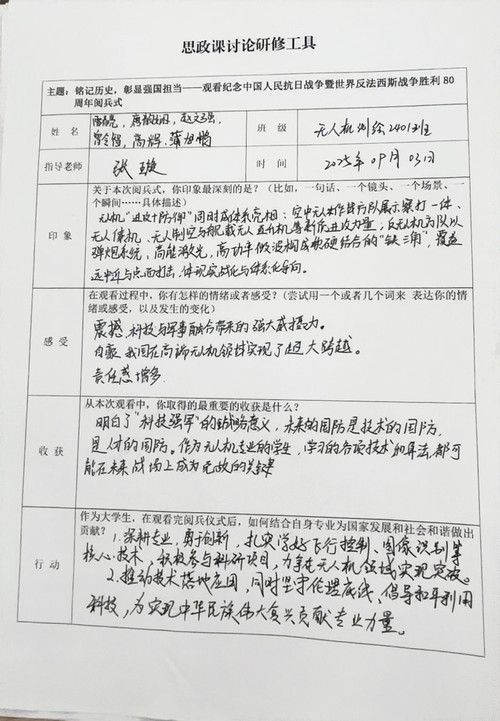 思政课讨论研修工具
主题：铭记历史，彰显强国担当——观看纪念中国人民抗日战争暨世界反法西斯战争胜利 80
周年阅兵式
姓 名
高辉
班 级
无人机测绘2401班
指导老师
张璇
时 间
2025年09月03日
印 象
关于本次阅兵式，你印象最深刻的是？（比如，一句话、一个镜头、一个场景、一
个瞬间……具体描述）
无人机"进攻+防御"同时成体系亮相：空中无人作战方队展示察打一体、
无人僚机、无人制空与舰载无人直升机等新质进攻力量；反无人机方队以
弹炮系统，高能激光，高功率微波构成软硬结合的"铁三角"，覆盖
远中近与点面打击，体现实战化与体系化导向。
感 受
在观看过程中，你有怎样的情绪或者感受？（尝试用一个或者几个词来 表达你的情
绪或感受，以及发生的变化）
震撼 科技与军事融合带来的强大威摄力。
自豪 我国在高端无人机领域实现了超大跨越。
责任感增多
收 获
从本次观看中，你取得的最重要的收获是什么？
明白了"科技强军"的战略意义，未来的国防是技术的国防，
是人才的国防。作为无人机专业的学生，学习的各项技术和算法，都可
能在未来战场上成为克敌的关键
行 动
作为大学生，在观看完阅兵仪式后，如何结合自身专业为国家发展和社会和谐做出
贡献？
1.深耕专业，勇于创新，扎实学好飞行控制、图像识别等
核心技术，积极参与科研项目，力争无人机领域实现突破。
2.推动技术落地应用，同时坚守伦理底线，倡导和平利用
科技，为实现中华民族伟大复兴贡献专业力量。